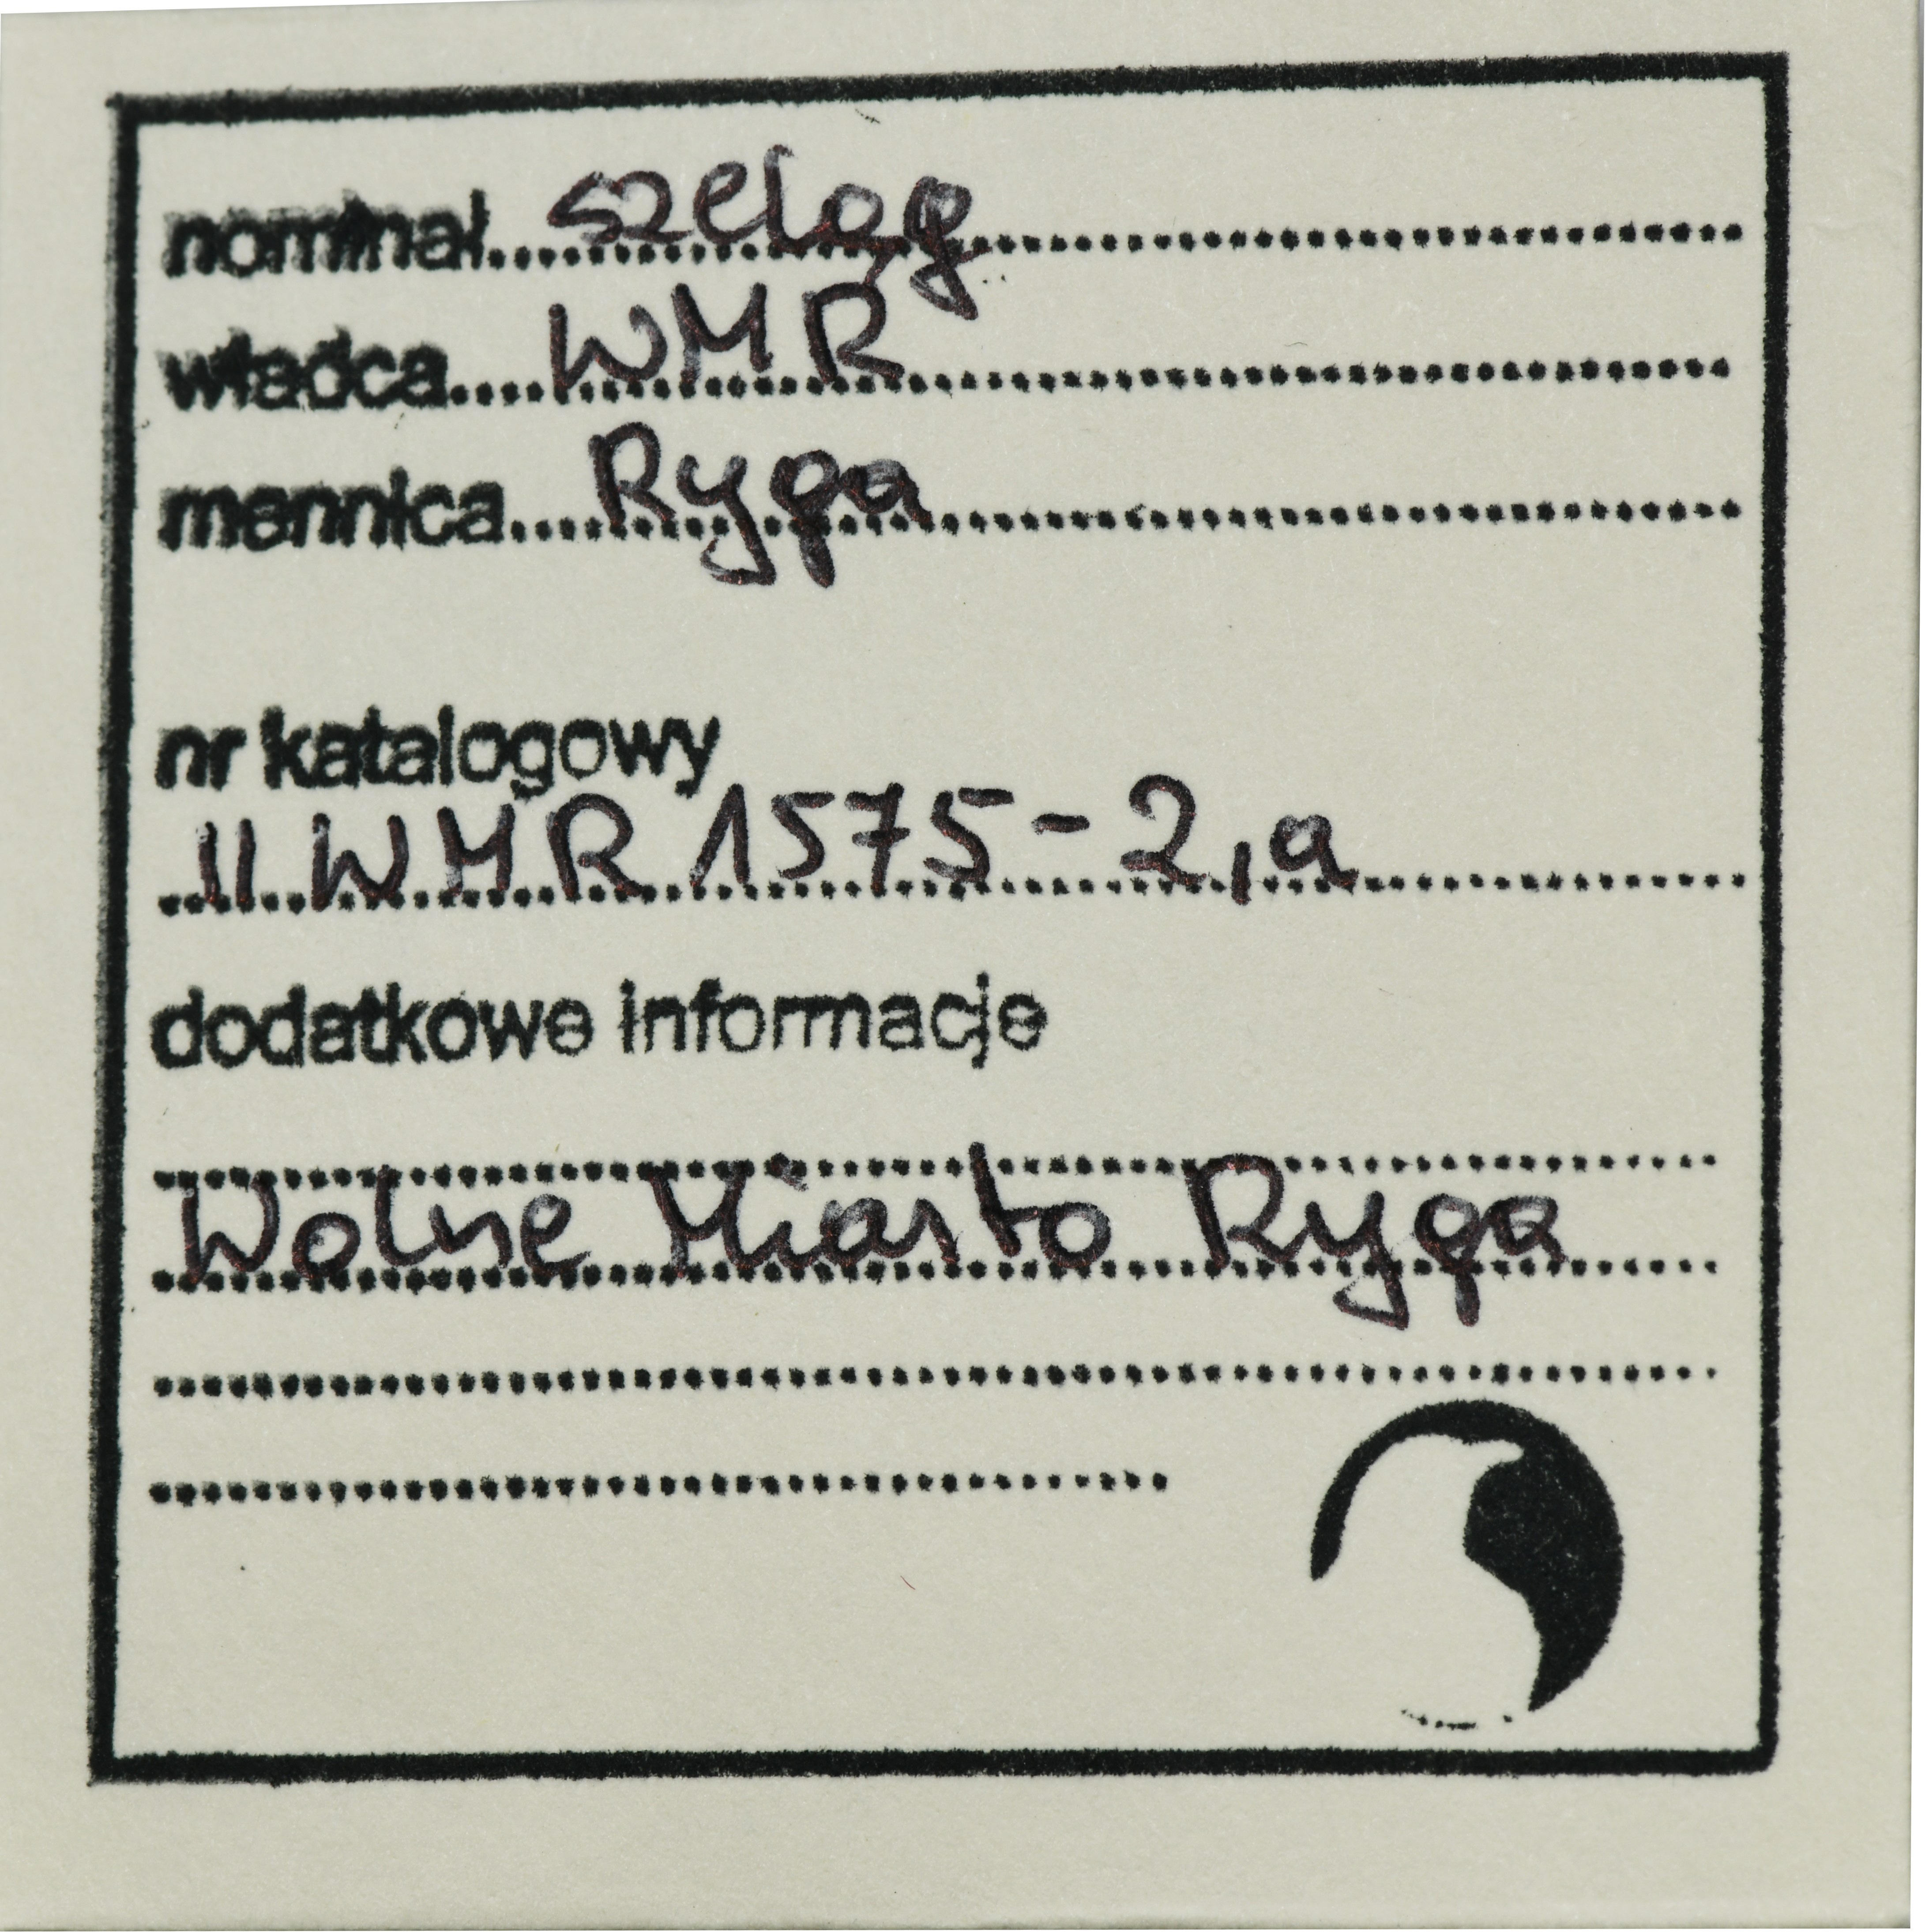 nominał szeląg
władca WMR
mennica Ryga
nr katalogowy
II WMR 1575-2,a
dodatkowe informacje
Wolne Miasto Ryga